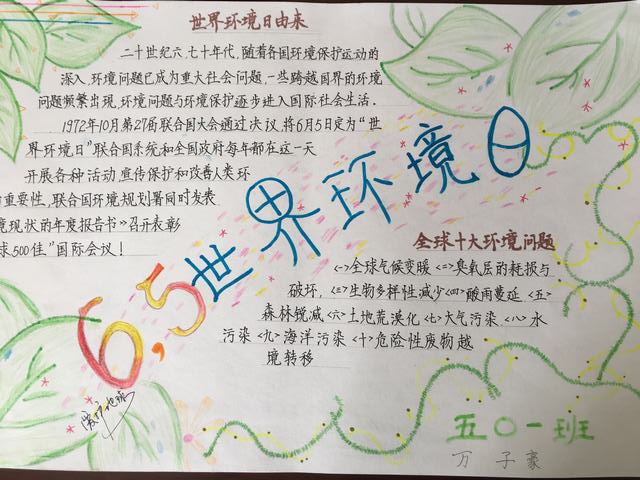 世界环境日由来
二十世纪六、七十年代,随着各国环境保护运动的
深入,环境问题已成为重大社会问题,一些跨越国界的环境
问题频繁出现,环境问题与环境保护逐步进入国际社会生活.
1972年10月第27届联合国大会通过决议,将6月5日定为“世
界环境日”联合国系统和全国政府每年都在这一天
开展各种活动宣传保护和改善人类环
重要性,联合国环境规划署同时发表
境现状的年度报告书》召开表彰
球500佳”国际会议!
6,5世界环境日
全球十大环境问题
<一>全球气候变暖<二>臭氧层的耗损与
破坏,<三>生物多样性减少<四>酸雨蔓延<五>
森林锐减<六>土地荒漠化<七>大气污染<八>水
污染<九>海洋污染<十>危险性废物越
境转移
爱护地球
五〇一班
万子豪